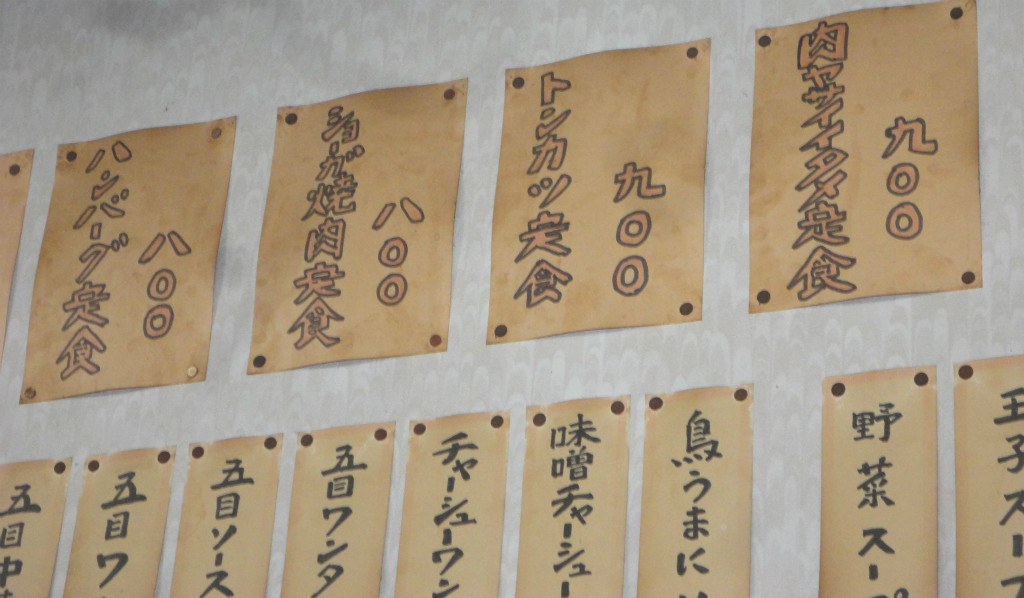 肉ヤサイイタメ定食
九〇〇
トンカツ定食
九〇〇
ショーガ焼肉定食
八〇〇
ハンバーグ定食
八〇〇
玉子スー
野菜スープ
鳥うまに
味噌チャーシュー
チャーシューワン
五目ワンタ
五目ソース
五目ワ
五目中